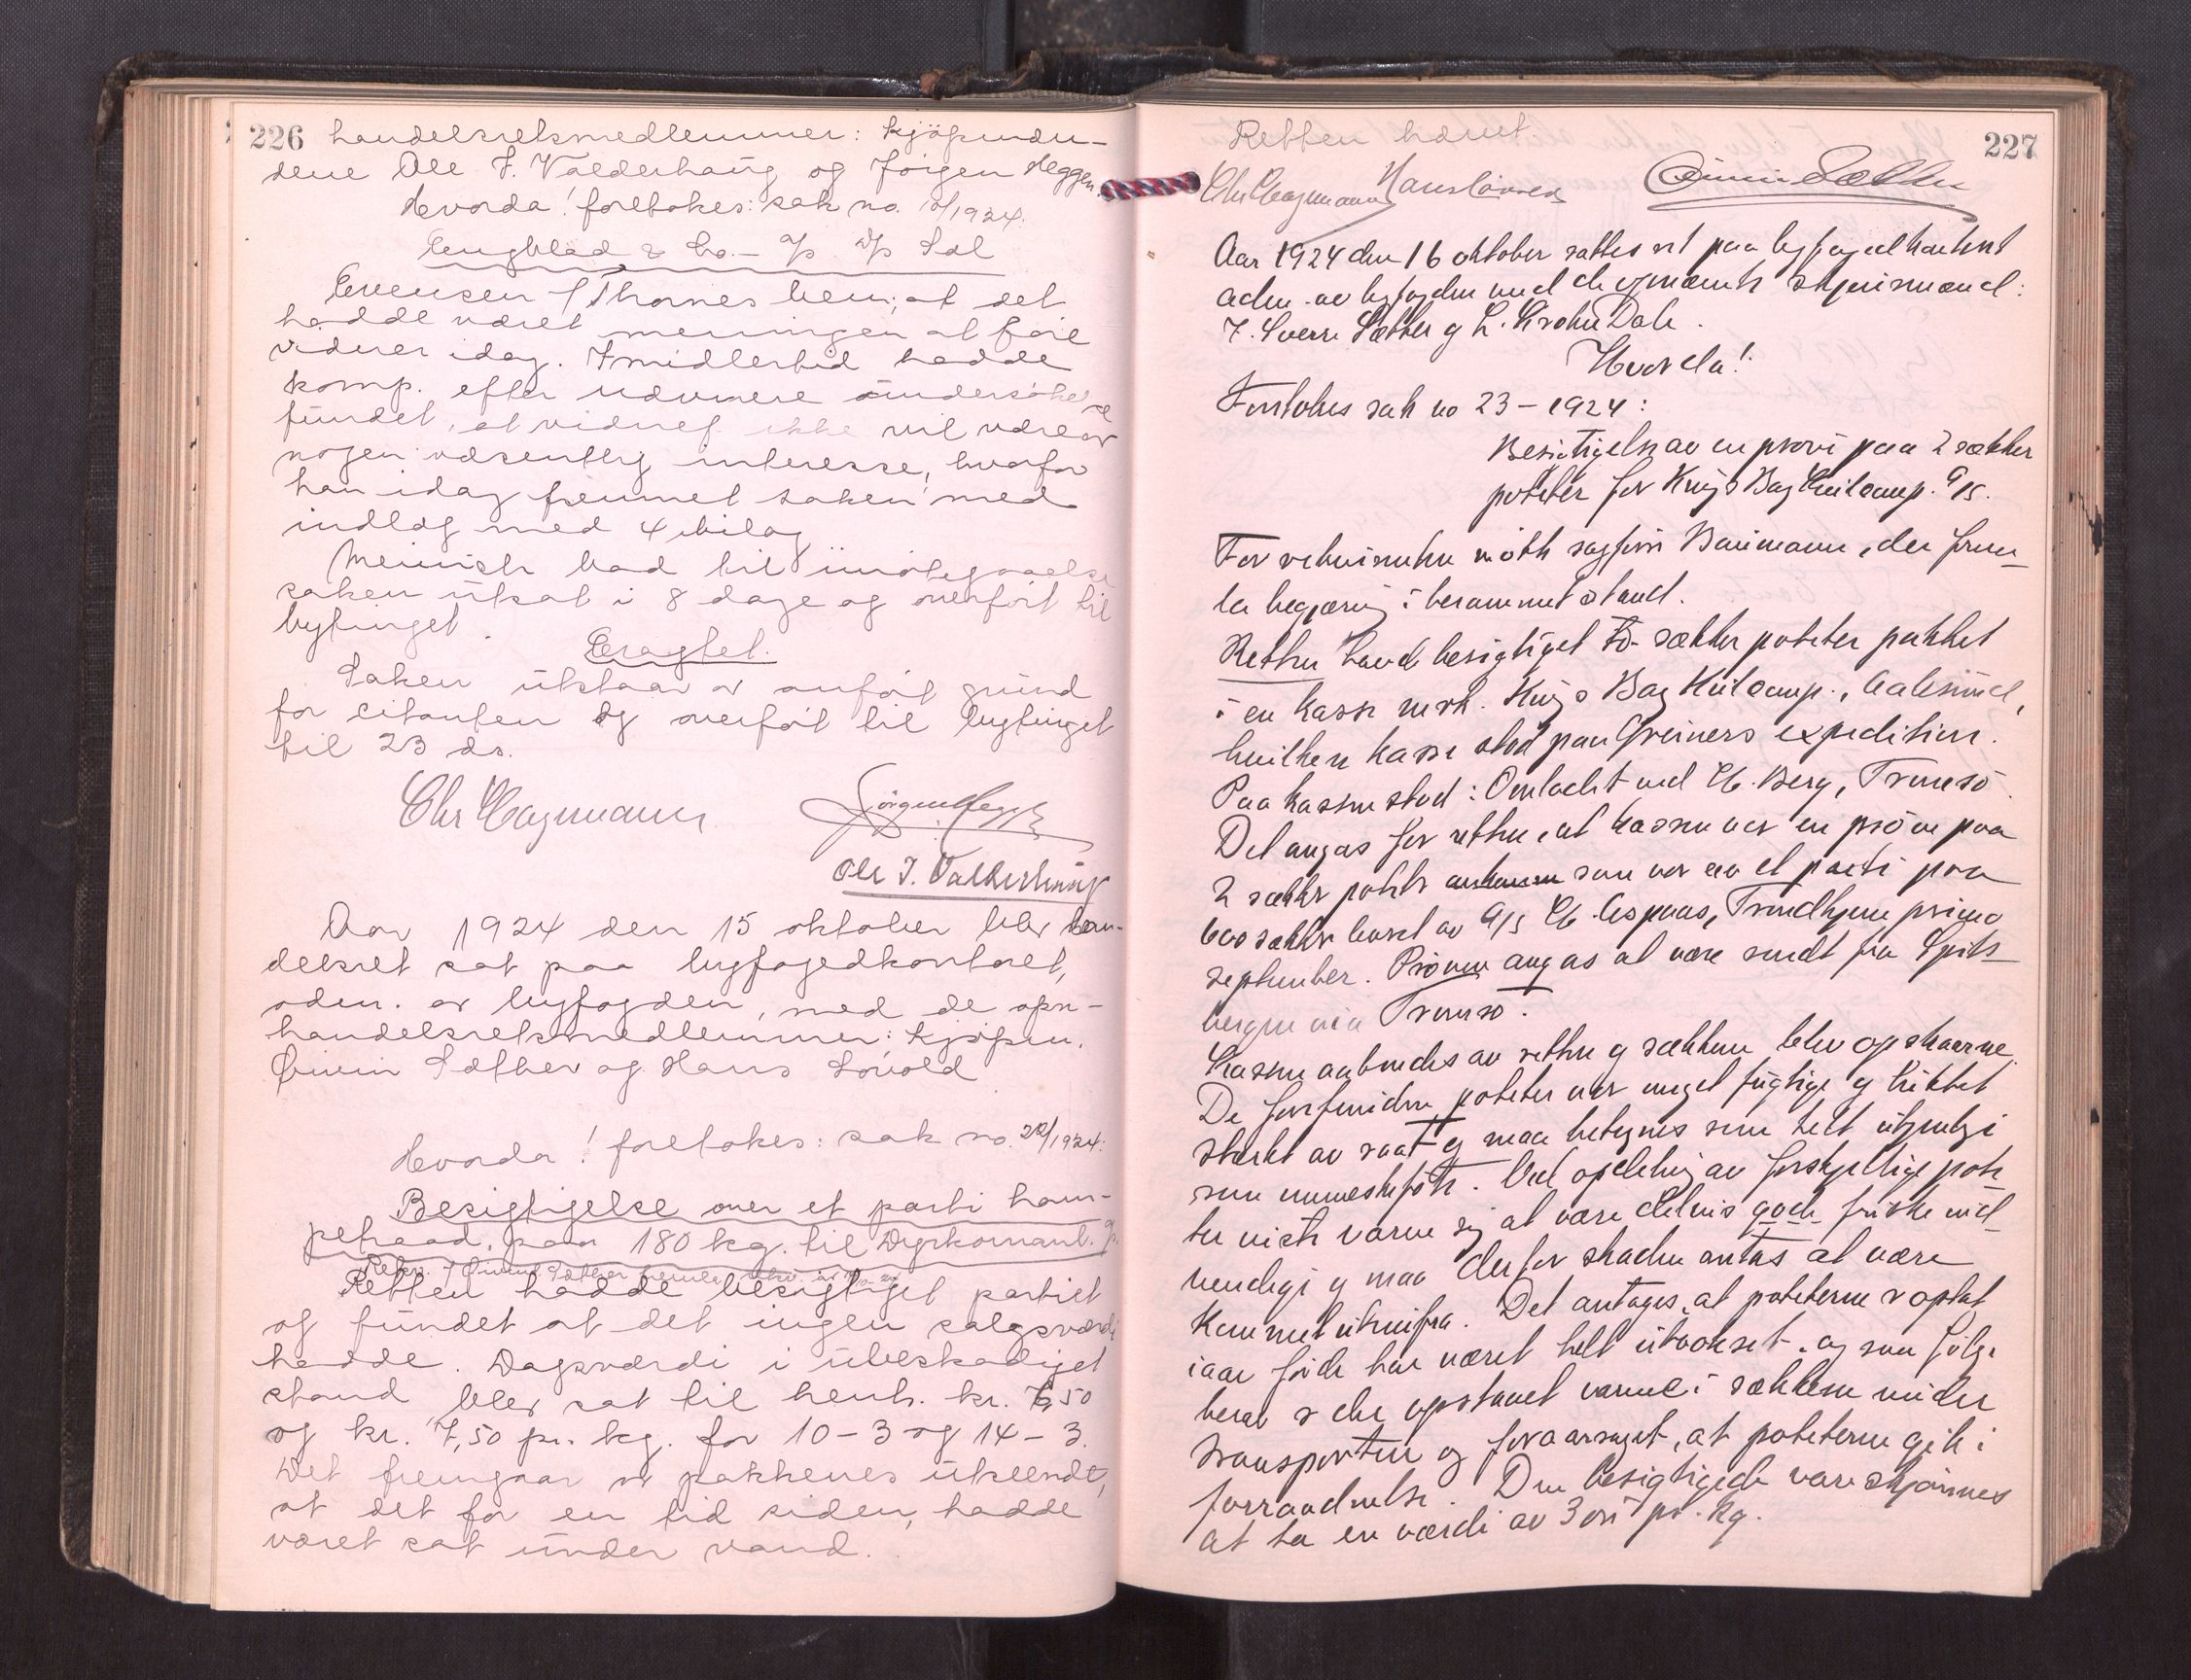 226 handelsretsmedlemmer: kjøpmæn-
dene Ole J. Valderhaug og Jørgen Hegge.
Hvorda! foretokes: sak no. /1924.
Engblad & Co. - %s D/s Sæl
Evensen f Thomes bem: at det
hadde været meningen at føre
vidner idag. Imidlertid hadde
komp. efter nærmere undersøkelse
fundet, at vidnet ikke vil være av
nogen væsentlig interesse, hvorfor
han idag fremmet saken med
indlæg med 4 bilag
Meinich bad til imøtegaaelse
saken utsat i 8 dage og overført til
bytinget.
Eragtet.
Saken utstaar av anført grund
for citanten og overført til bytinget
til 23 ds.
Chr Hagemann Jørgen Hegge
Ole J. Valderhaug
Aar 1924 den 15 oktober blev han-
delsret sat paa byfogedkontoret,
adm. av byfogden, med de opn-
handelsretsmedlemmer: kjøpm.
Øivin Sæther og Hans Lövold
Hvorda! foretokes: sak no. 22/1924:
Besigtigelse over et parti ham-
petraad, paa 180 kg. til Dyrkornant.
Retten hadde besigtiget partiet
og fundet at det ingen salgsværdi
hadde. Dagsværdi i ubeskadiget
stand blev sat til henh. kr. 6,50
og kr. 7,50 pr. kg. for 10-3 og 14-3.
Det fremgaar av pakkenes utseende,
at det for en tid siden, hadde
været sat under vand.
Retten hævet. 227
Chr Hagemann Hans Lövold Øivin Sæther
Aar 1924 den 16 oktober sattes ret paa byfogedkontoret
adm. av byfogden med de opnævnte skjønsmænd:
J. Sverre Sæther og L. Krohn Dale.
Hvorda!
Foretokes sak no 23-1924:
Besigtigelse av en prøve paa 2 sækker
poteter for Kings Bay Kulcomp. A/S.
For rekvirenten møtte sagfører Baumann, der frem-
la begjæring i berammet stand.
Retten havd besigtiget to sækker poteter pakket
i en kasse merk. Kings Bay Kulcomp., Aalesund,
hvilken kasse stod paa Greiners expedition.
Paa kassen stod: Omladet ved Chr. Berg, Tromsø.
Det angas for retten, at kassen var en prøve paa
2 sækker poteter som var av et parti paa
600 sækker levert av A/S Chr. Aspaas, Trondhjem primo
september. Prøven angas at være sendt fra Spits-
bergen via Tromsø.
Kassen aabnedes av retten og sækkene blev opskaarne.
De forefundne poteter var meget fugtige og luktet
sterkt av raat og maa betegnes som helt utjenlig
som menneskeføde. Ved opdeling av forskjellige pote-
ter viste varen sig at være delvis gode friske ind-
vendige og maa derfor skaden antas at være
kommet utenfra. Det antages, at poteterne er optat
iaar før de har været helt utvokset, og som følge
herav er der opstaaet varme i sækkene under
transporten og foraarsaget, at poteterne gik i
forraadnelse. Den besigtigede vare skjønnes
at ha en værdi av 3 øre pr. kg.